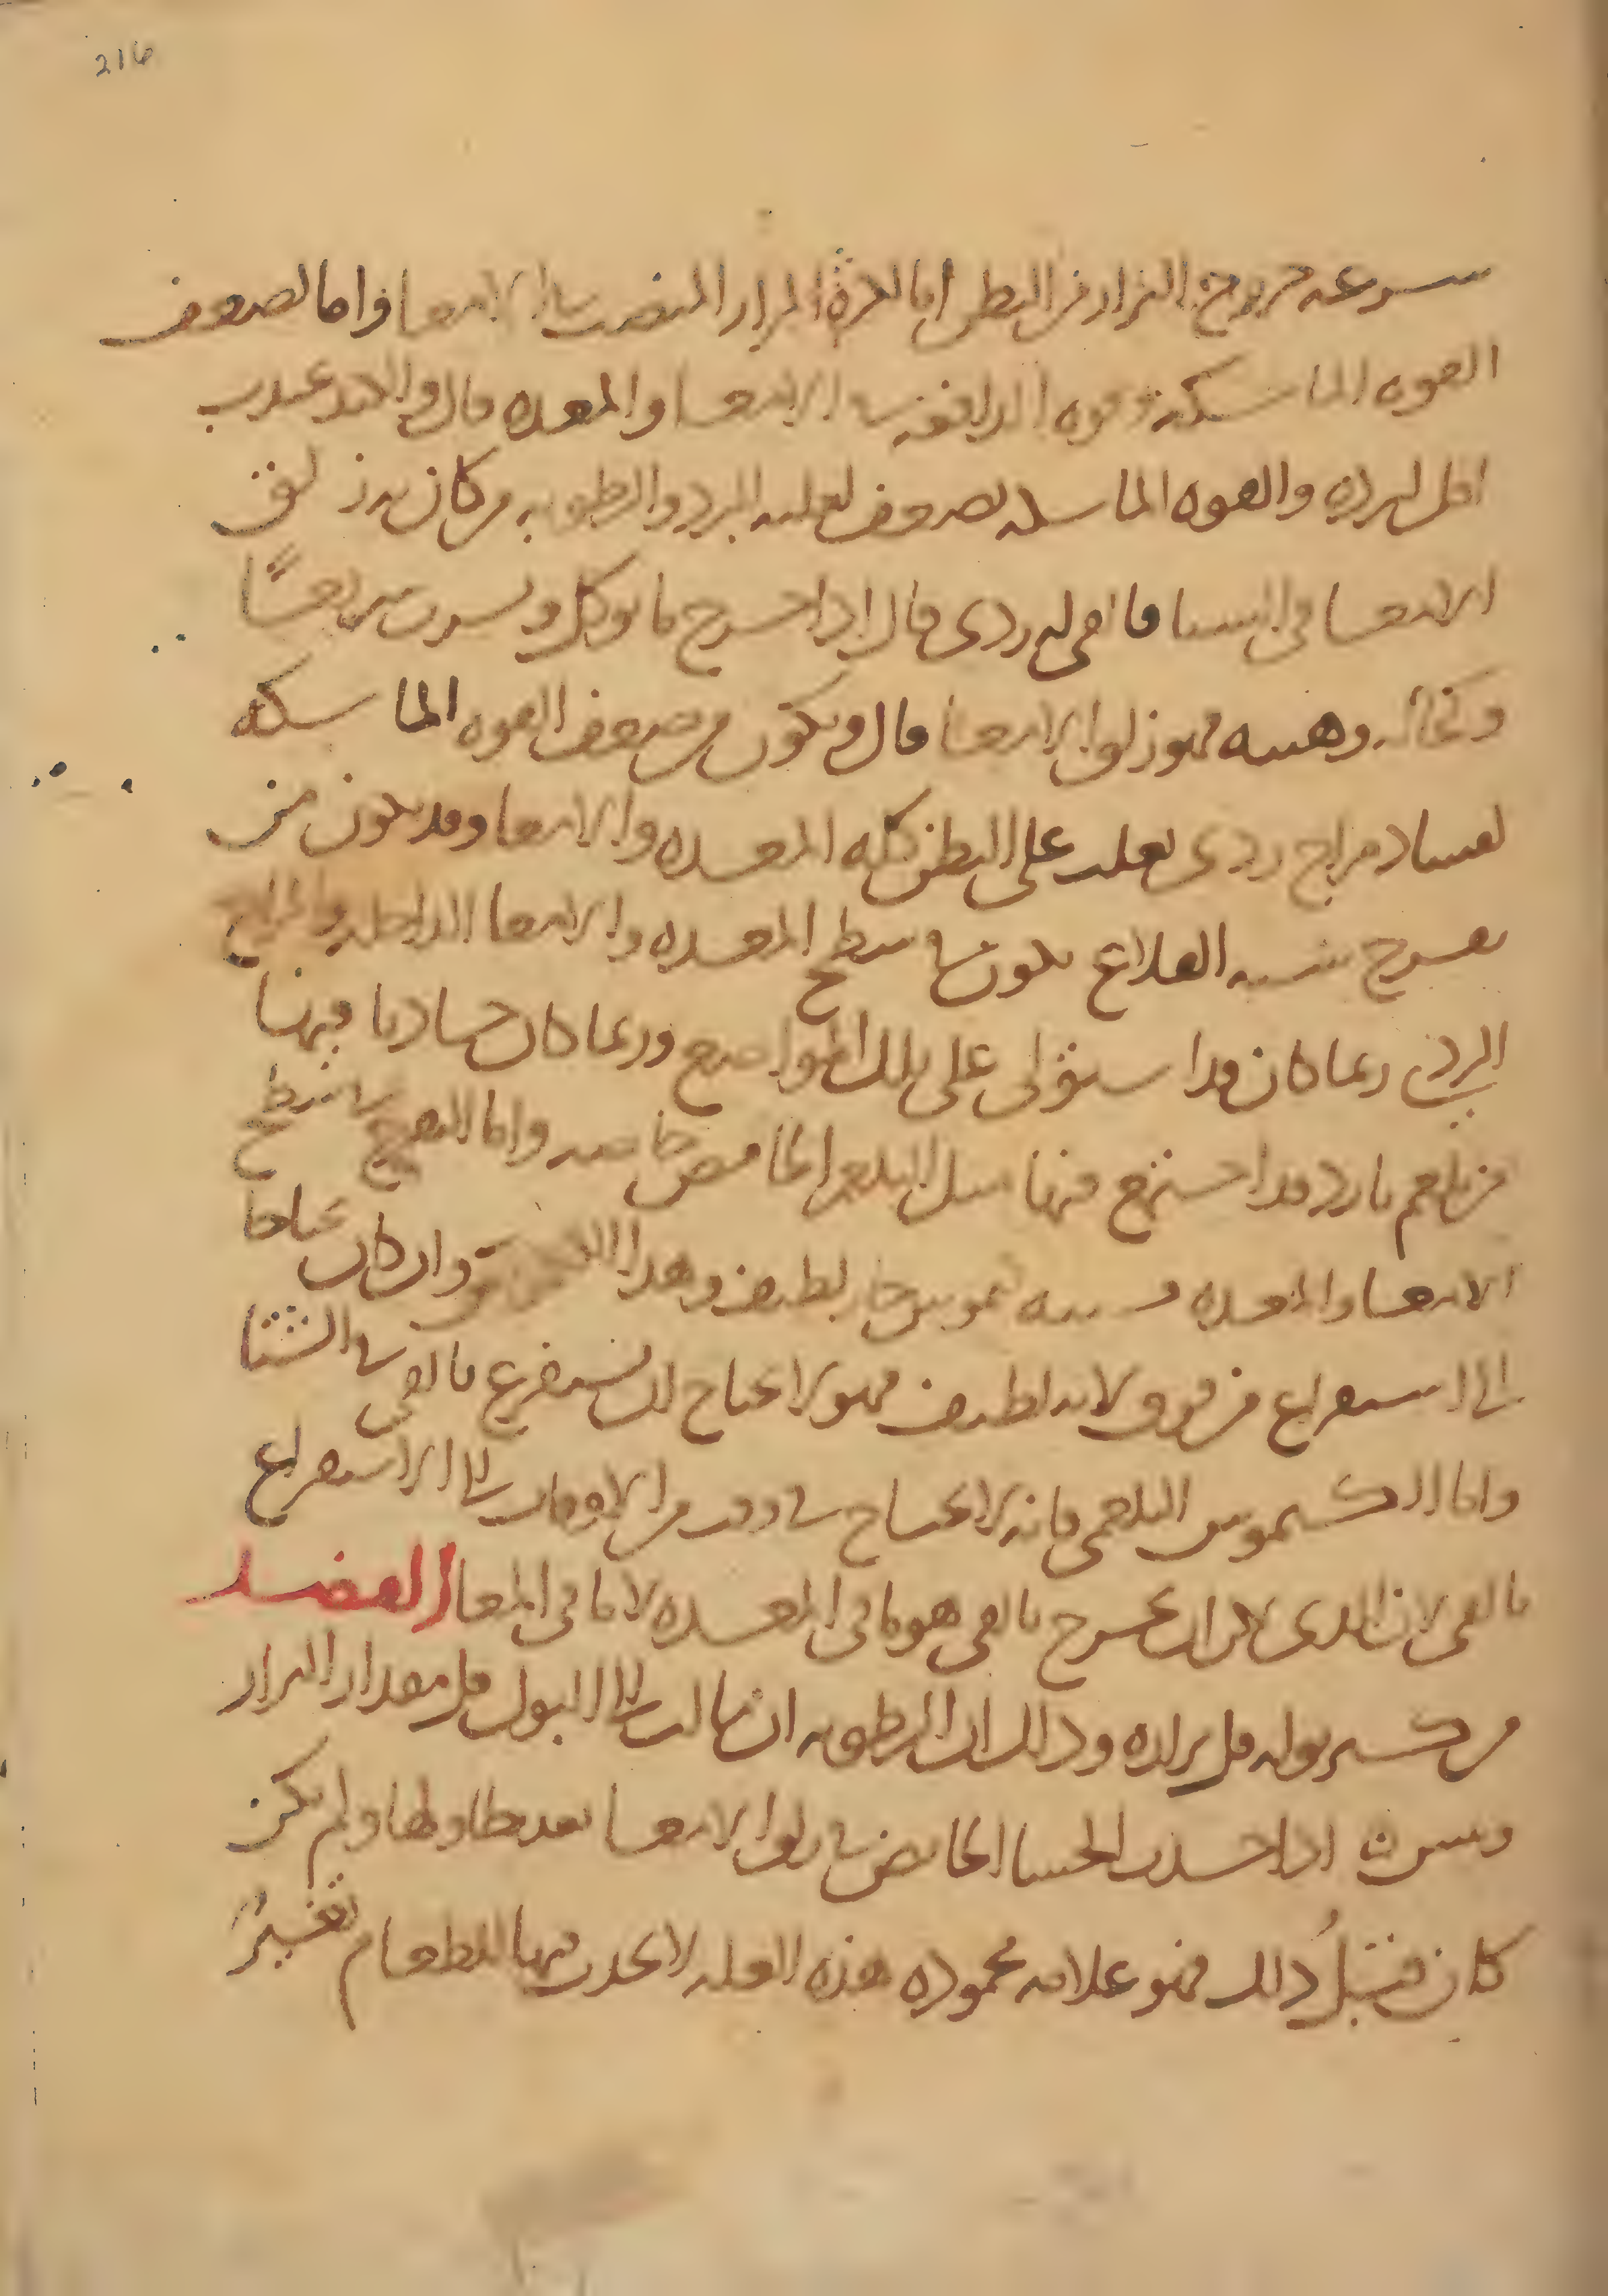 216
سرعه خروج البراز من البطن اما لكثرة المرار المنصب الى الامعا واما لصعف
القوه الماسكة وقوه الدافعه الامعا والمعده قال والكبد عندى
اقل لبرده والقوه الماسكه تصعف لغلبه البرد والرطوبه من كان به زلق
الامعا فى الشتا فالقى له ردى قال اذا خرج ما يوكل ويشرب سريعًا
وبحاله وهيته فهو زلق الامعا قال ويكون من ضعف القوه الماسكه
لفساد مزاج ردى يغلب على البطن كله المعده والامعا وقد يكون من
تقرح شبيه القلاع يكون فى سطح المعده والامعا الداخله والمزاج
الردى ربما كان قد استولى على تلك المواضع وربما كان حادثا فيها
من بلغم بارد قد اجتمع فيها مثل البلغم الحامض خاصه واما التقرح فى سطح
الامعا والمعده فسببه كيموس حار لطيف وهذا وان كان محتاجا
الى استفراغ من فوق لانه لطيف فهو لا يحتاج ان يستفرغ بالقى فى الشتا
واما الكيموس البلغمى فانه لا يحتاج فى وقت من الاوقات الى الاستفراغ
بالقى لان الذى يخرج بالقى هو ما فى المعده لا ما فى المعا الفصد
من كثر بوله قل برازه وذلك ان الرطوبه ان مالت الى البول قل مقدار البراز
ويبس اذا حدث الجشا الحامض فى زلق الامعا بعد تطاولها ولم يكن
كان قبلُ ذلك فهو علامه محموده هذه العله لا يحدث فيها للطعام تغييرٌ